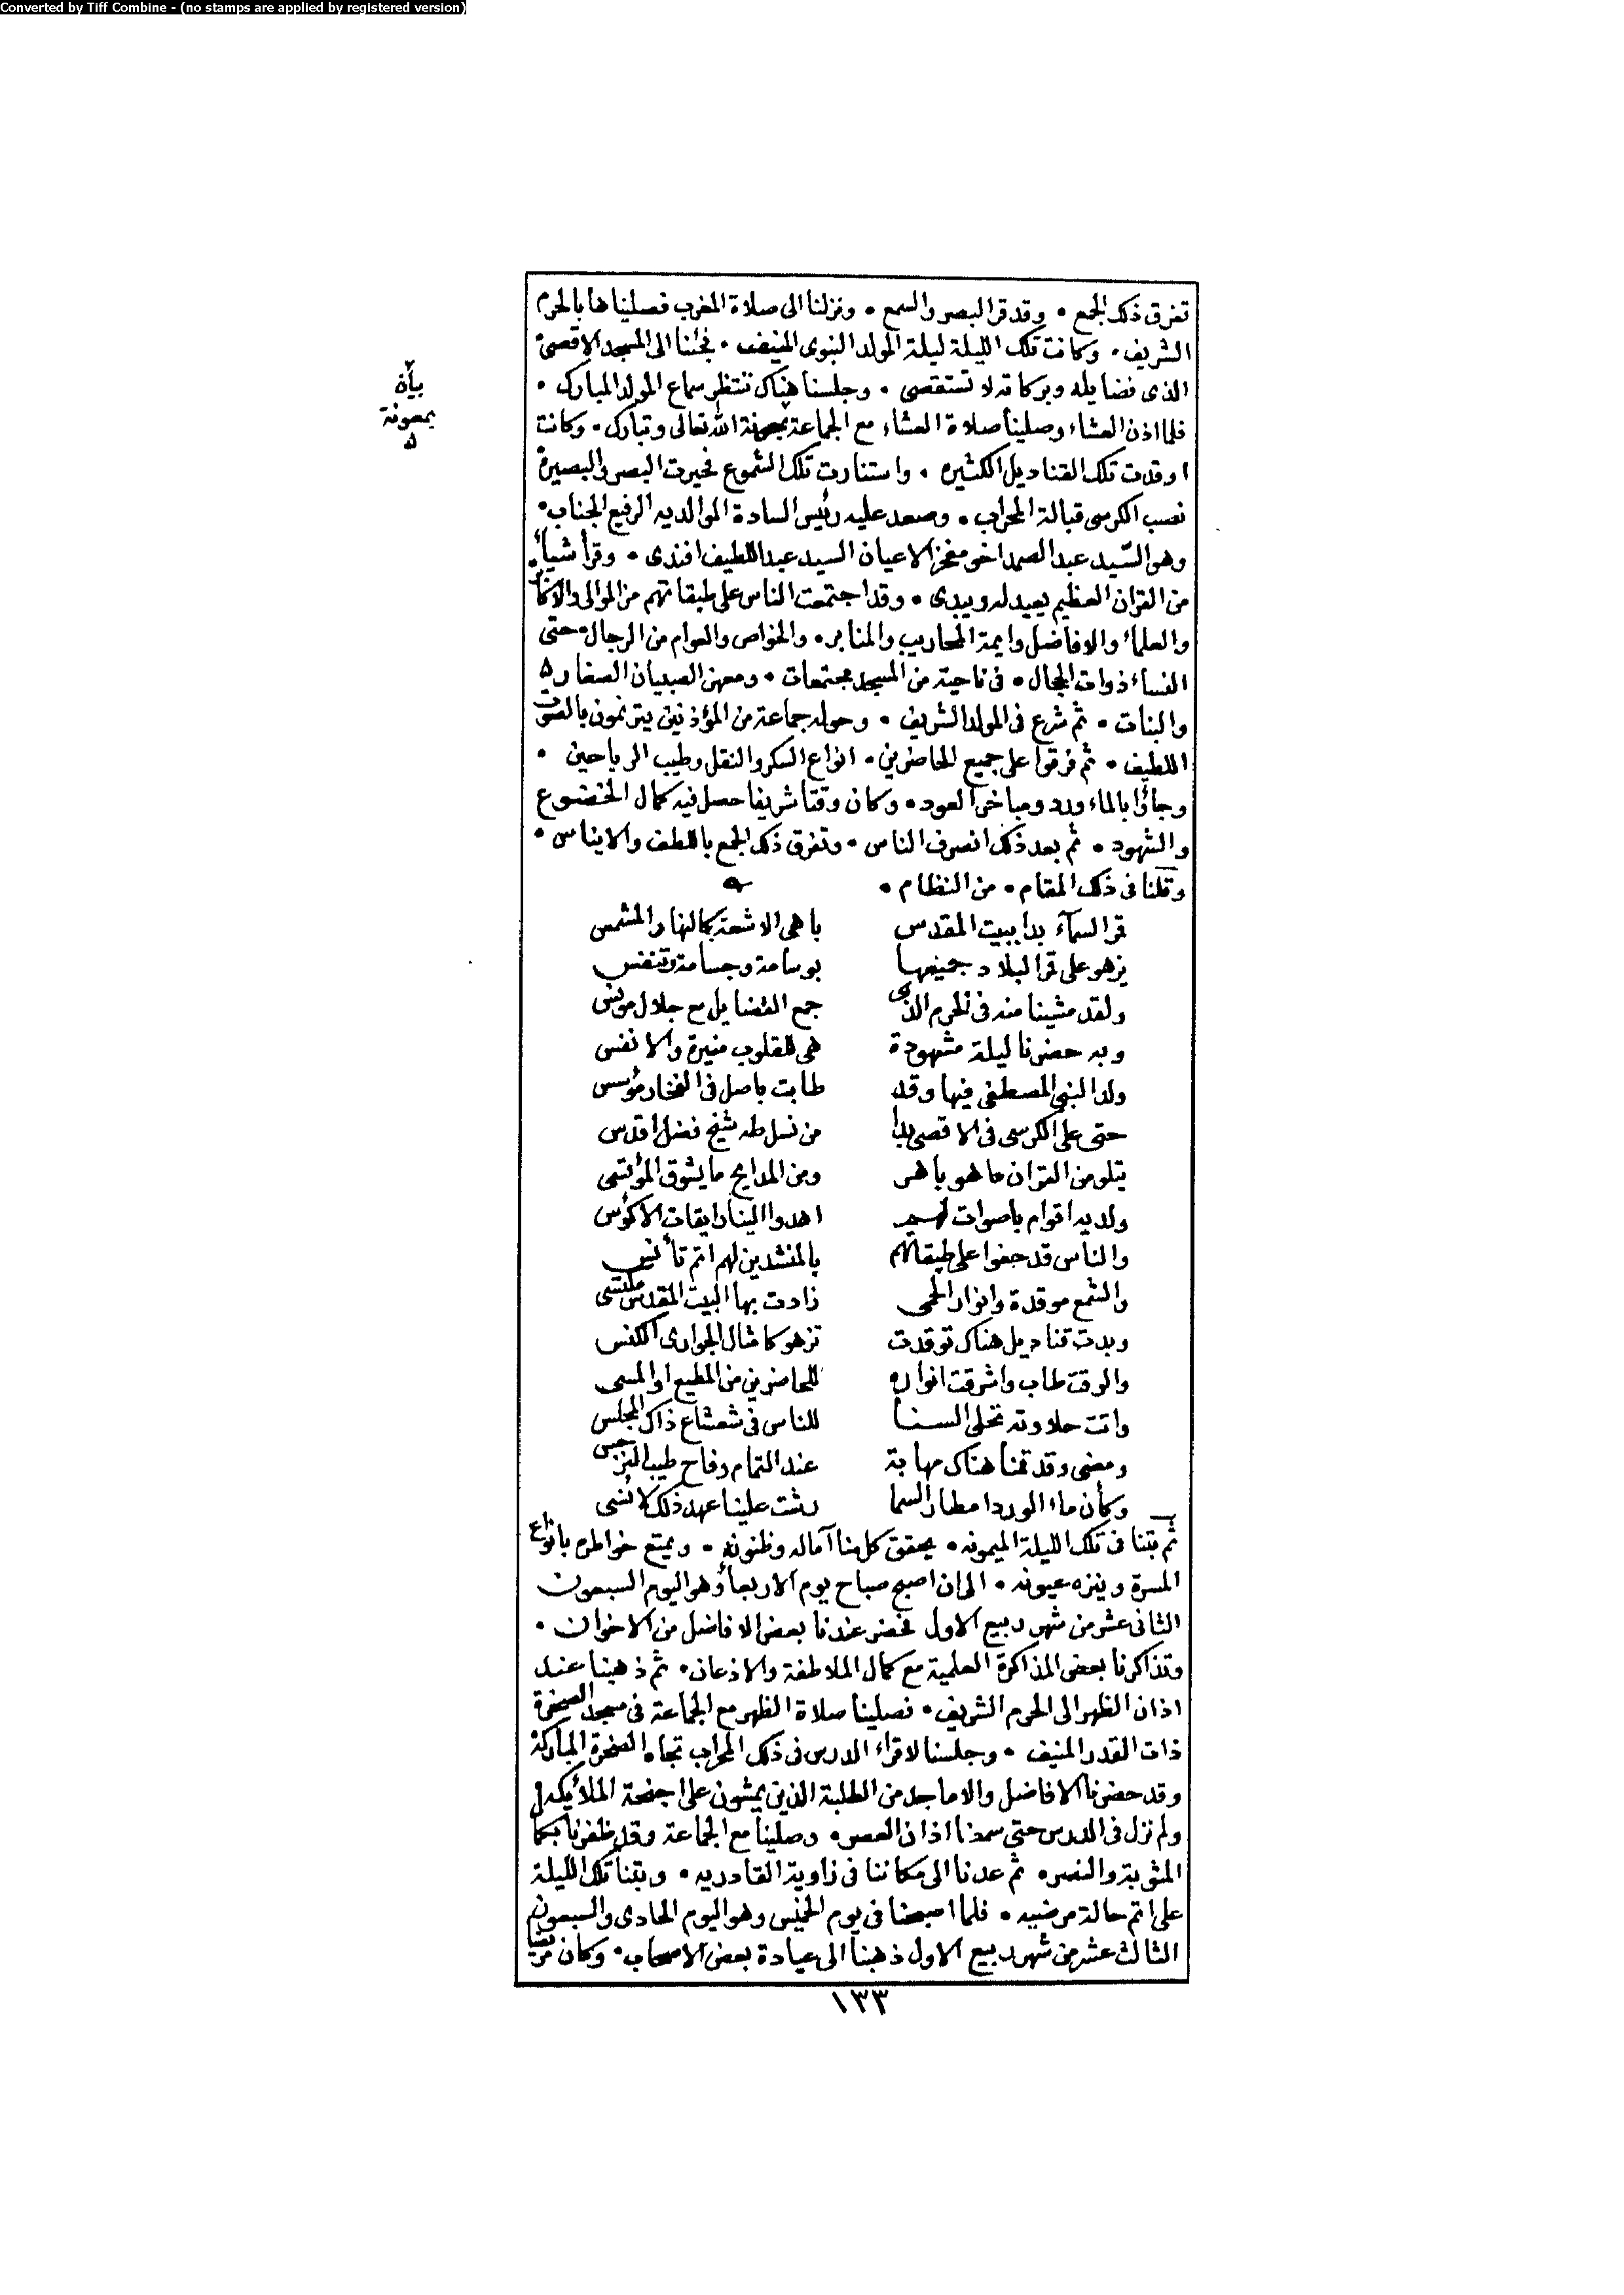 Converted by Tiff Combine - (no stamps are applied by registered version)
تفرق ذلك الجمع • وقد قر البصر والسمع • ونزلنا الى صلاة المغرب فصليناها بالحرم
الشريف • وكانت تلك الليلة ليلة المولد النبوى المنيف • فجئنا الى المسجد الاقصى
الذى فضايله وبركاته لا تستقصى • وجلسنا هناك ننتظر سماع المولد المبارك •
فلما اذن العشاء وصلينا صلاة العشاء مع الجماعة بمعونة الله تعالى وتبارك • وكانت
بيان
بمعونة
اوقدت تلك القناديل الكثيره • واستنارت تلك الشموع فحيرت البصر والبصيرة
نصب الكرسى قبالة المحراب • وصعد عليه رئيس السادة الموالديه الرفيع الجناب •
وهو السّيد عبد الصمد اخو مفخر الاعيان السيد عبد اللطيف افندى • وقرأ شيأ
من القران العظيم يعيد له ويبدى • وقد اجتمعت الناس على طبقاتهم من الموالى والاكابر
والعلماء والافاضل وايمة المحاريب والمنابر • والخواص والعوام من الرجال • حتى
النساء ذوات الجمال • فى ناحية من المسجد مجتمعات • ومعهن الصبيان الصغار
والبنات • ثم شرع فى المولد الشريف • وحوله جماعة من المؤذنين يترنمون بالصوت
اللطيف • ثم فرقوا على جميع الحاضرين • انواع السكر والنقل وطيب الرياحين •
وجاؤا بالماء ورد ومباخر العود • وكان وقتا شريفا حصل فيه كمال الخضوع
والشهود • ثم بعد ذلك انصرف الناس • وتفرق ذلك الجمع باللطف والايناس •
وقلنا فى ذلك المقام • من النظام •
قمر السمآء بدا ببيت المقدس باهى الاشعة كالنهار المشمس
يزهو على قمر البلاد جميعها بوسامة وجسامة وتنفس
ولقد مشينا منه فى الحرم الذى جمع الفضايل مع جلال مونس
وبه حضرنا ليلة مشهودة هى للقلوب منيرة والانفس
ولد النبى المصطفى فيها وقد طابت باصل فى الفخار مؤسس
حتى على الكرسى فى الاقصى بدا من نسل طه شيخ فضل اقدس
يتلو من القران ما هو باهر ومن المدايح ما يشوق المؤتسى
ولديه اقوام باصوات لهم اهدوا الينا رايقات الاكؤس
والناس قد حفوا على طبقاتهم بالمنشدين لهم اتم تأنس
والشمع موقدة وانوار الحمى زادت بها البيت المقدس مكتسى
وبدت قناديل هناك توقدت تزهو كامثال الجوارى الكنس
والوقت طاب واشرقت انواره للحاضرين من المطيع او المسى
واتت حلاوته تحلى السنا للناس فى شعشاع ذاك المجلس
ومضى وقد قمنا هناك مهابة عند التمام وفاح طيب النرجس
وكأن ماء الورد امطار السما رشت علينا عهد ذلك لا نسى
ثم بتنا فى تلك الليلة الميمونه • يحقق كل منا آماله وظنونه • ويمتع خواطره بانواع
المسرة وينزه عيونه • الى ان اصبح صباح يوم الاربعاء وهو اليوم السبعون
الثانى عشر من شهر ربيع الاول فحضر عندنا بعض الافاضل من الاخوان •
وتذاكرنا بعض المذاكرة العلمية مع كمال الملاطفة والاذعان • ثم ذهبنا عند
اذان الظهر الى الحرم الشريف • فصلينا صلاة الظهر مع الجماعة فى مسجد الصخرة
ذات القدر المنيف • وجلسنا لاقراء الدرس فى ذلك المحراب تجاه الصخرة المباركة
وقد حضرنا الافاضل والاماجد من الطلبة الذين يمشون على اجنحة الملائكة
ولم نزل فى الدرس حتى سمعنا اذان العصر • وصلينا مع الجماعة وقد ظفرنا بكمال
المثوبة والنصر • ثم عدنا الى مكاننا فى زاوية القادريه • وبتنا تلك الليلة
على اتم حالة مرضيه • فلما اصبحنا فى يوم الخميس وهو اليوم الحادى والسبعون
الثالث عشر من شهر ربيع الاول ذهبنا الى عيادة بعض الاصحاب • وكان مريضا
١٣٣